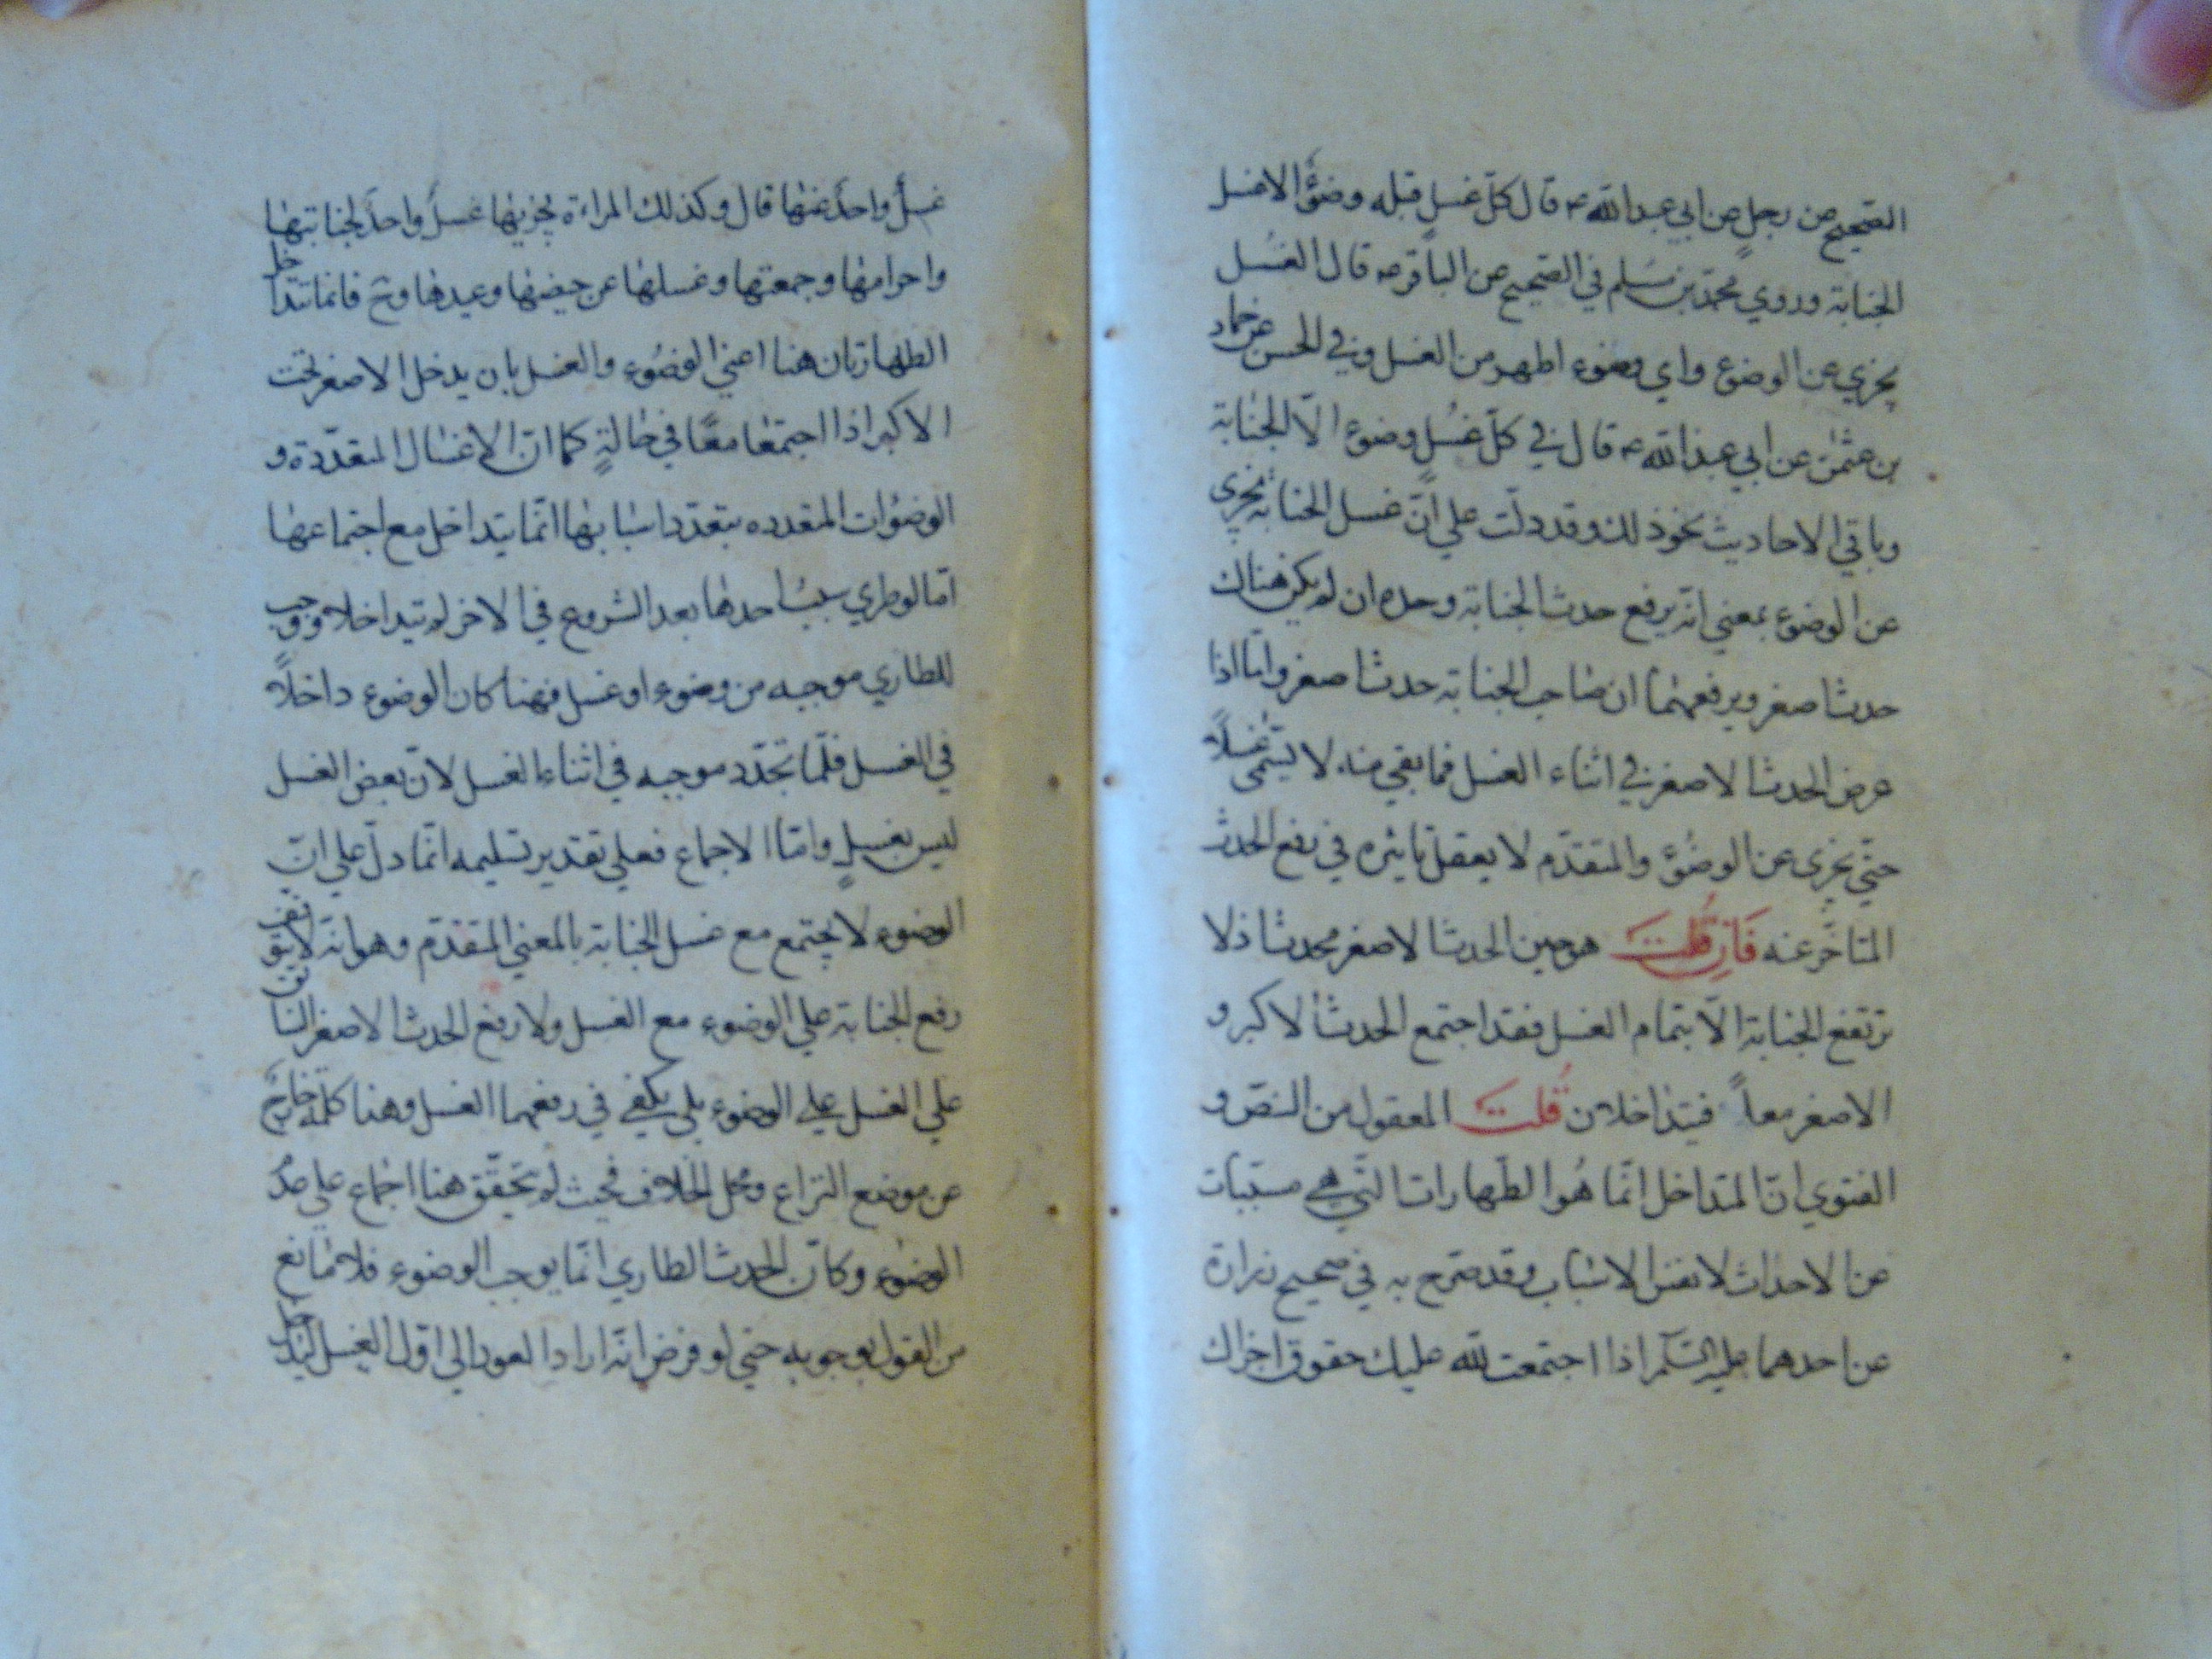 الصحيح عن رجل عن ابي عبد الله ع قال كلّ غسل قبله وضؤٌ الا غسل
الجنابة وروي محمّد بن مسلم في الصحيح عن الباقر ع قال الغسُل
يجزي عن الوضوء واي وضوء اطهر من الغسل وفي الحسن عن حماد
بن عثمن عن ابي عبد الله ع قال في كلّ غسُلٍ وضوء الّا الجنابة
وباقي الاحاديث نحو ذلك وقد دلّت علي انّ غسل الجنابة مجزي
عن الوضوء بمعني انّه يرفع حدث الجنابة وحده ان لم يكن هناك
حدث اصغر ويرفعهما ان صاحب الجنابة حدث اصغر وامّا اذا
عرض الحدث الاصغر في اثناء الغسل فما بقي منه لا يسمّى غسلاً
حتّي يجزى عن الوضُؤ والمتقدّم لا يعقل تاثيره في رفع الحدث
المتاخّر عنه فَاِن قُلتَ هو حين الحدث الاصغر محدث اذ لا
ترتفع الجنابة الّا بتمام الغسل فقد اجتمع الحدث الاكبر و
الاصغر معاً فيتداخلان قُلتَ المعقول من النصّ و
الفتوي انّ المتداخل انّما هُو الطّهارات التّي هي مسبّبات
عن الاحداث لا نفس الاسباب وقد صرّح به في صحيح زرارة
عن احدهما عليه السّلم اذا اجتمعت لله عليك حقوق اجزاك
غسلٌ واحدٌ عنها قال وكذلك المراءة يجزيها غسلٌ واحدٌ لجنابتها
واحرامها وجمعتها وغسلها عن حيضها وعيدها وح فانما تتداخل
الطهارتان هنا اعني الوضُوء والغسل بان يدخل الاصغر تحت
الاكبر اذا اجتمعا معًا في حالةٍ كما انّ الاغسال المتعدّدة و
الوضوُات المتعدده بتعدّد اسبابها انّما يتداخل مع اجتماعها
امّا لو طري سبب احدها بعد الشروع في الاخر لم يتداخلا ووجب
للطاري موجبه من وضوء او غسل فهنا كان الوضوء داخلاً
في الغسل فلمّا تجدّد موجبه في اثناء الغسل لانّ بعض الغسل
ليس بغسلٍ وامّا الاجماع فعلي تقدير تسليمه انّما دلّ علي انّ
الوضوء لا يجتمع مع غسل الجنابة بالمعني المتقدّم وهو انّه لا يتوقف
رفع الجنابة علي الوضوء مع الغسل ولا رفع الحدث الاصغر السابق
علي الغسل علي الوضوء بل يكفي في رفعهما الغسل وهنا كلّه خارج
عن موضع النزاع ومحل الخلاف فحيث لم يتحقّق هنا اجماع علي عدم
الوضوء وكانّ الحدث الطاري انّما يوجب الوضوء فلا مانع
من القول بوجوبه حتي لو فرض انّه اراد العود الي اوّل الغسل ليتداخل